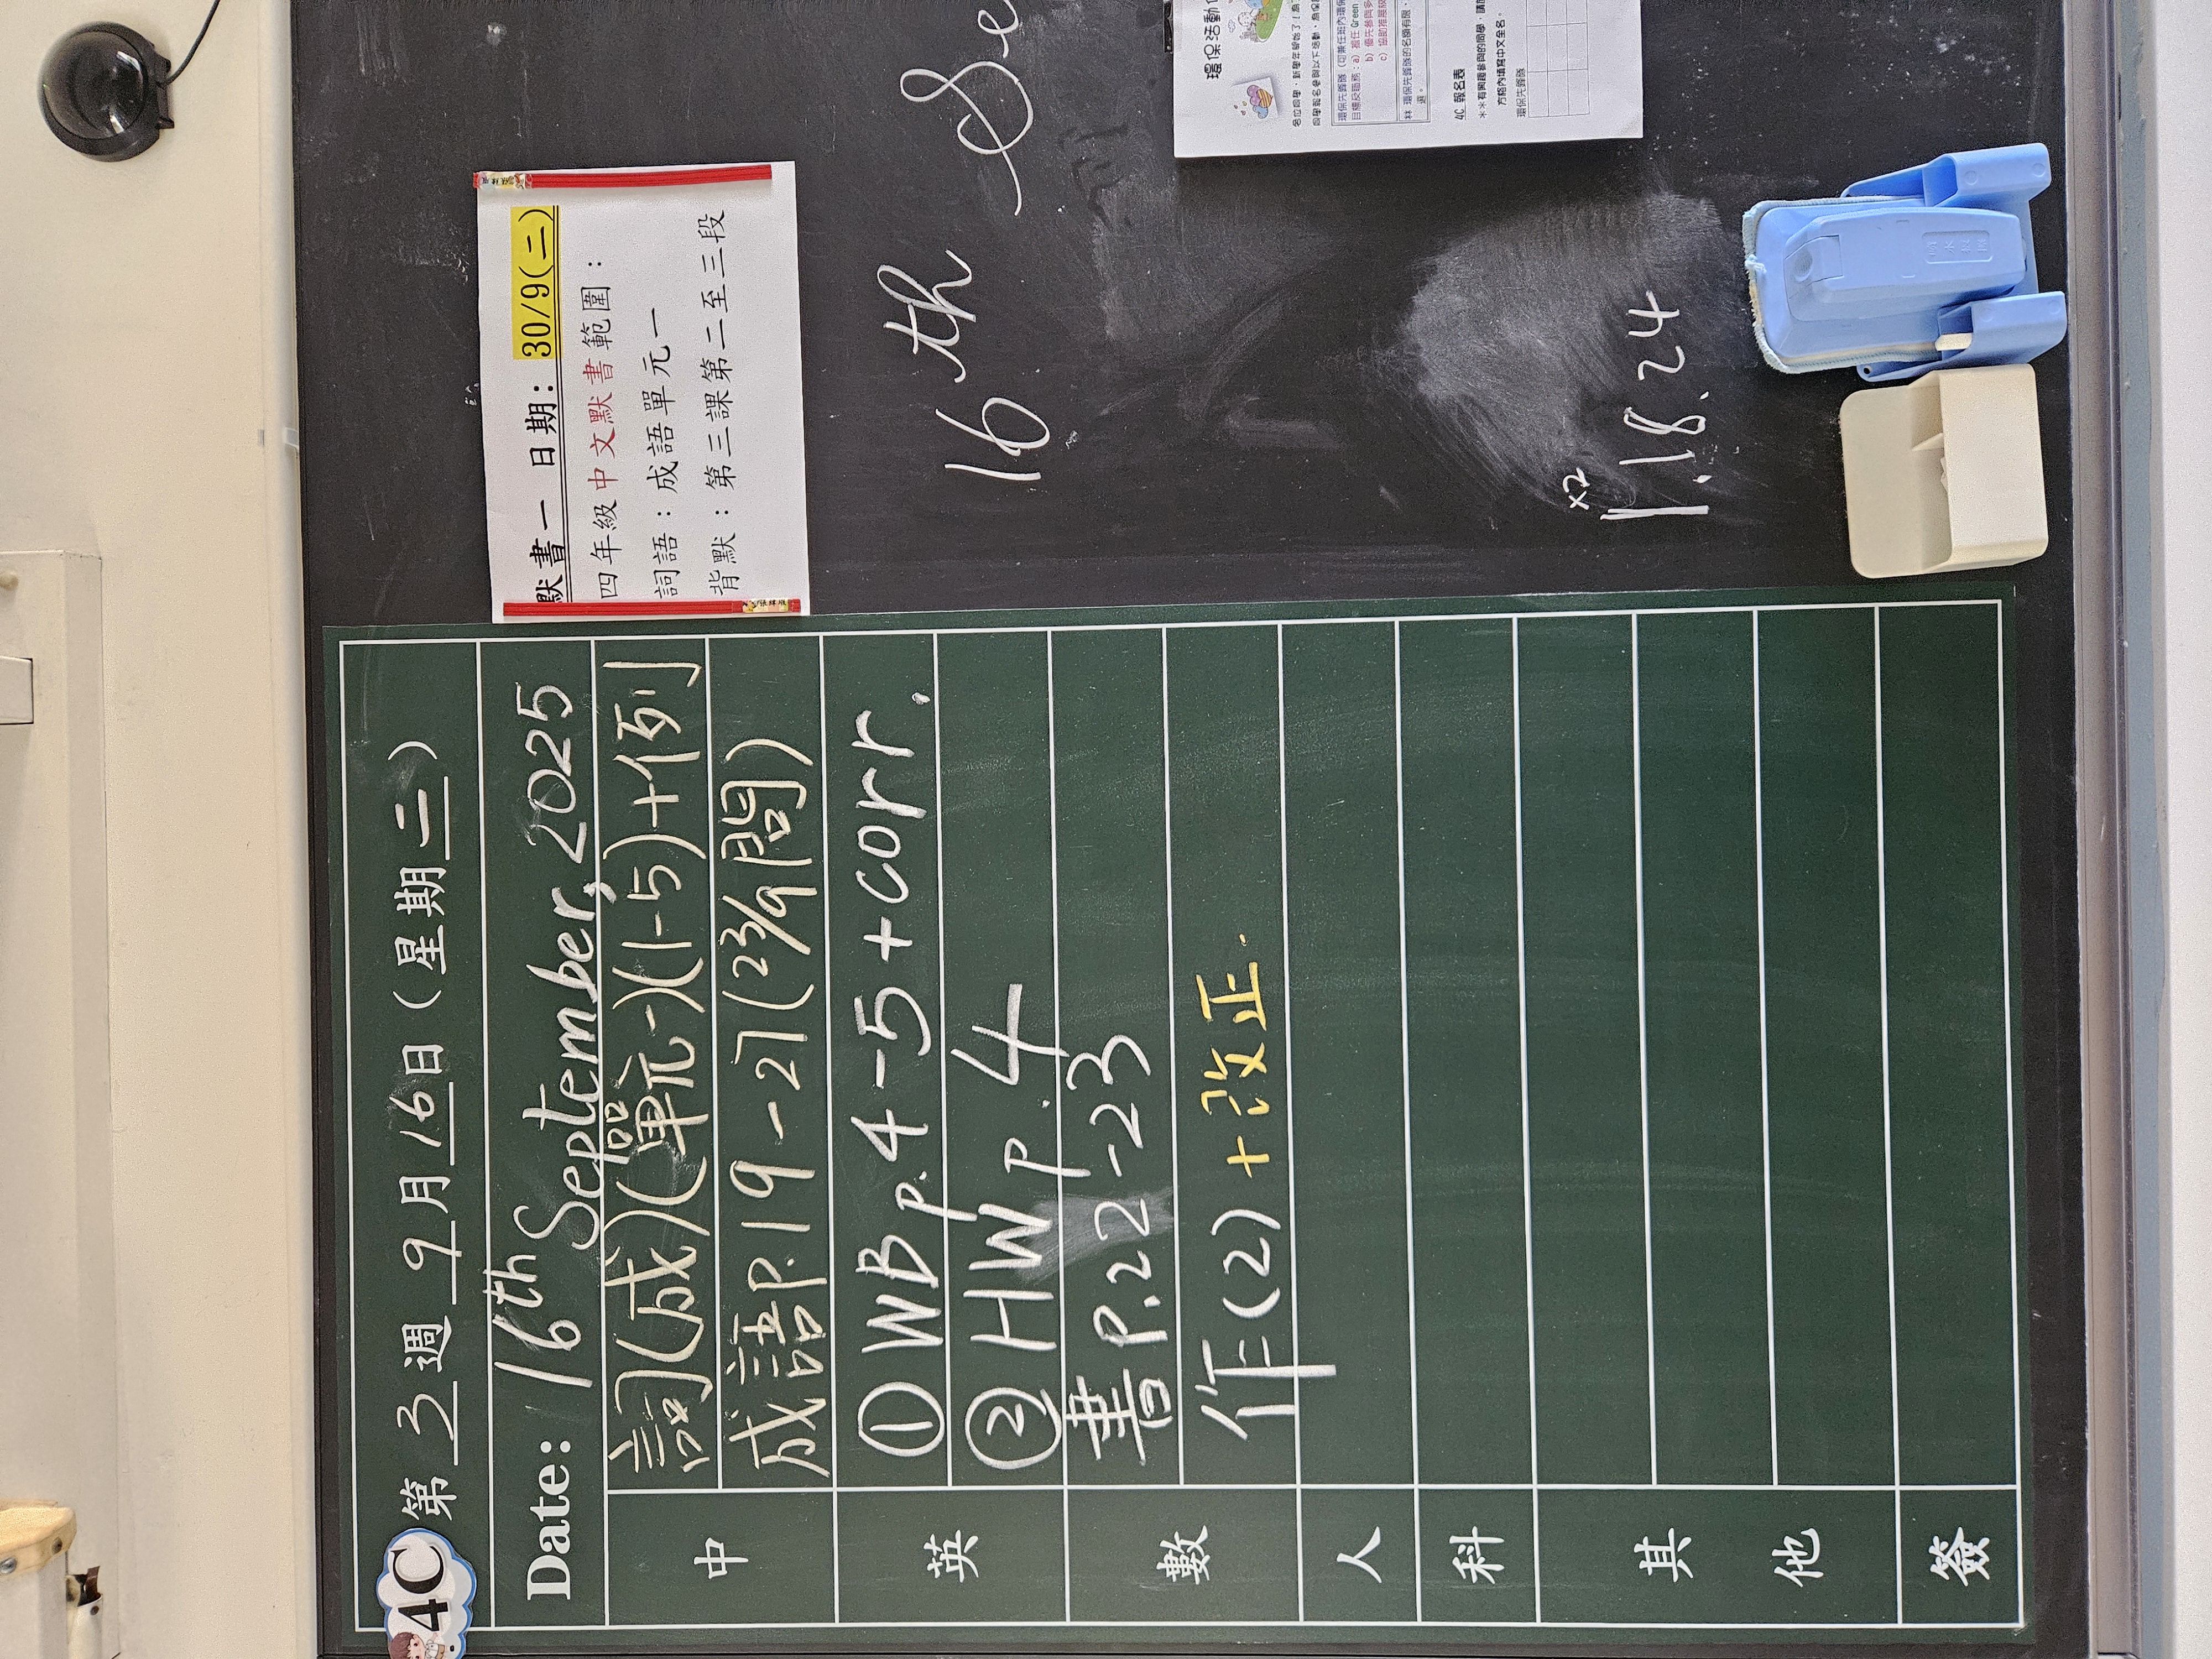 4C
第3週 9月16日(星期二)
Date: 16th September, 2025
中
詞(成)(單元一)(1-5)+例
成語P.19-27(23/9問)
英
① WB p.4-5+corr.
② HW p.4
數
書P.22-23
作(2)+改正.
人
科
其他
簽
默書一 日期: 30/9(二)
四年級中文默書範圍:
詞語:成語單元一
背默:第三課第二至三段
16th Se
x2
1.18.24
環保活動
4C 報名表
方格內填寫中文全名。
環保先鋒隊